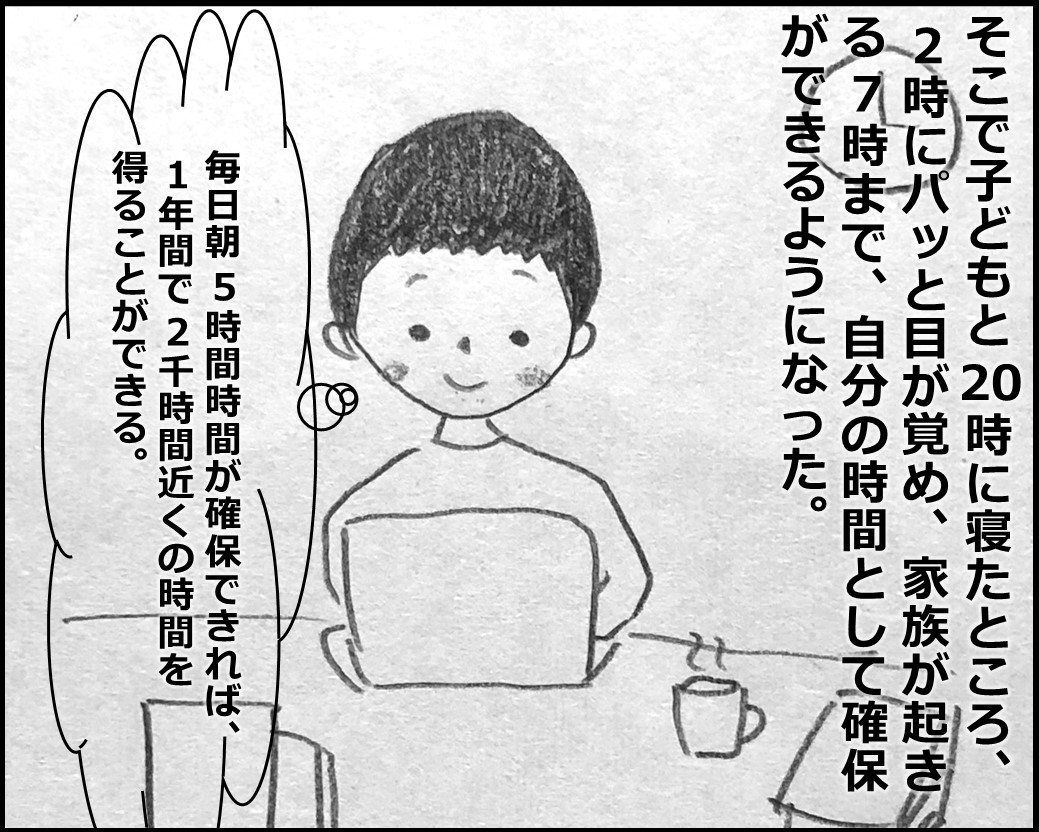 そこで子どもと20時に寝たところ、
2時にパッと目が覚め、家族が起き
る7時まで、自分の時間として確保
ができるようになった。
毎日朝5時間時間が確保できれば、
1年間で2千時間近くの時間を
得ることができる。